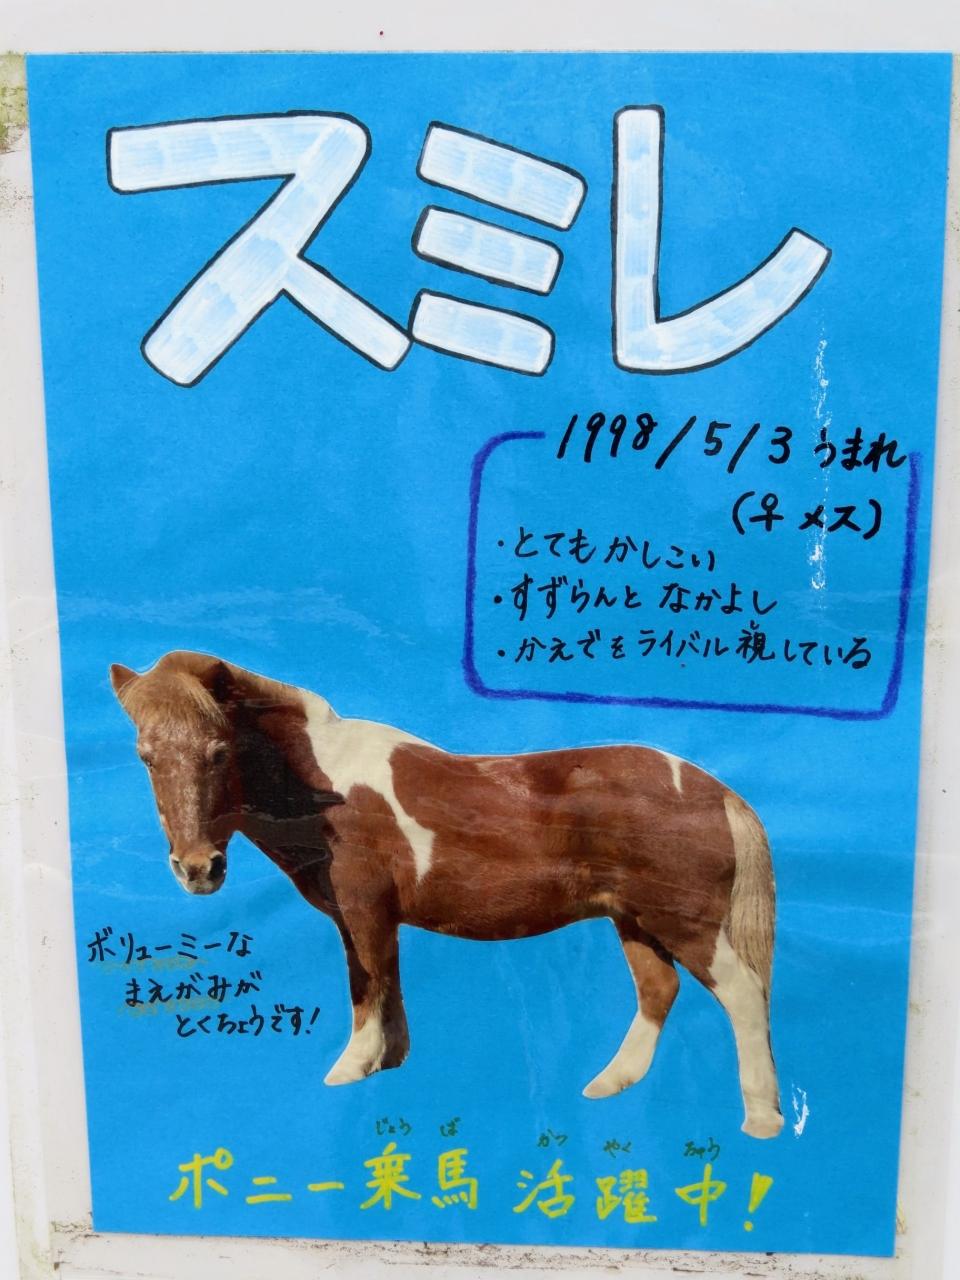 スミレ
1998/5/3 うまれ
(♀ メス)
・とても かしこい
・すずらんと なかよし
し
・かえでを ライバル視している
ボリューミーな
まえがみが
とくちょうです!
じょう ば かつ やく ちゅう
ポニー乗馬 活躍中!